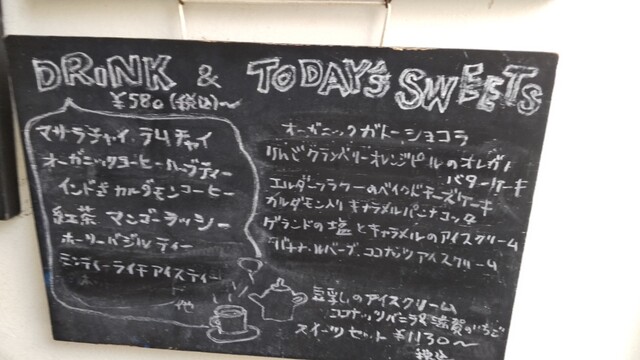 DRINK & TODAY'S SWEETS
¥580(税込)〜
マサラチャイ.ラムチャイ
オーガニックコーヒー.ハーブティー
インド式カルダモンコーヒー
紅茶 マンゴーラッシー
ホーリーバジルティー
ミンティーライチアイスティー
他
オーガニックガトーショコラ
りんごクランベリーオレンジピールの
バターケーキ
エルダーフラワーのベイクドチーズケーキ
カルダモン入りキャラメルパンナコッタ
ゲランドの塩とキャラメルのアイスクリーム
ココナッツアイスクリーム
豆乳のアイスクリーム
ココナッツバニラ&滋賀のいちご
スイーツセット ¥1130〜
税込